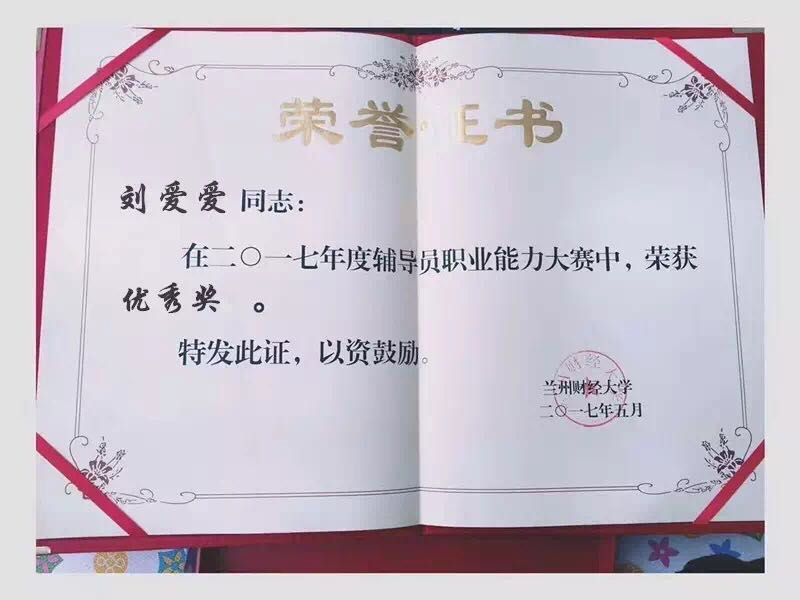 荣誉证书
刘爱爱 同志：
在二〇一七年度辅导员职业能力大赛中，荣获
优秀奖 。
特发此证，以资鼓励。
兰州财经大学
二〇一七年五月